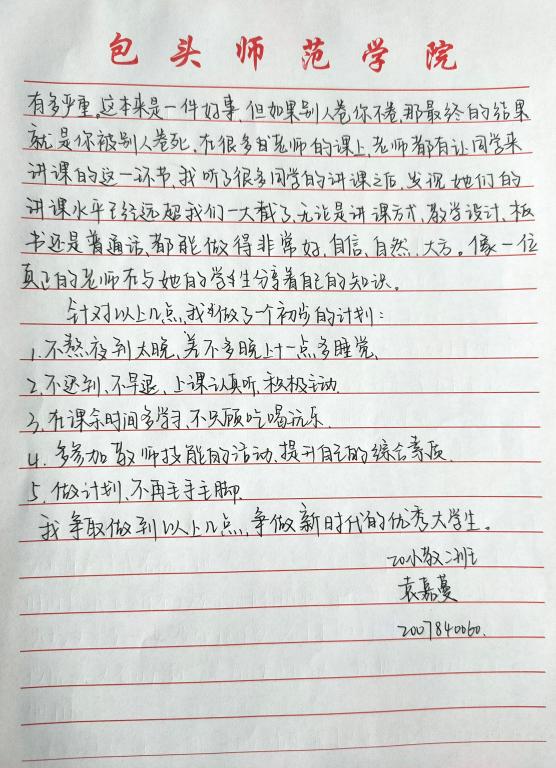 包头师范学院
有多严重。这本来是一件好事,但如果别人卷你不卷,那最终的结果
就是你被别人卷死,在很多的老师的课上,老师都有让同学来
讲课的这一环节,我听了很多同学的讲课之后,发现她们的
讲课水平已经远超我们一大截了,无论是讲课方式、教学设计、板
书还是普通话,都能做得非常好,自信、自然、大方。像一位
真正的老师在与她的学生分享着自己的知识。
针对以上几点,我做了一个初步的计划:
1.不熬夜到太晚,差不多晚上十一点多睡觉,
2.不迟到、不早退,上课认真听,积极主动.
3.在课余时间多学习,不只顾吃喝玩乐.
4.多参加教师技能的活动,提升自己的综合素质.
5.做计划,不再毛手毛脚.
我争取做到以上几点,争做新时代的优秀大学生。
20小教二班
袁嘉蔓
2007840060.